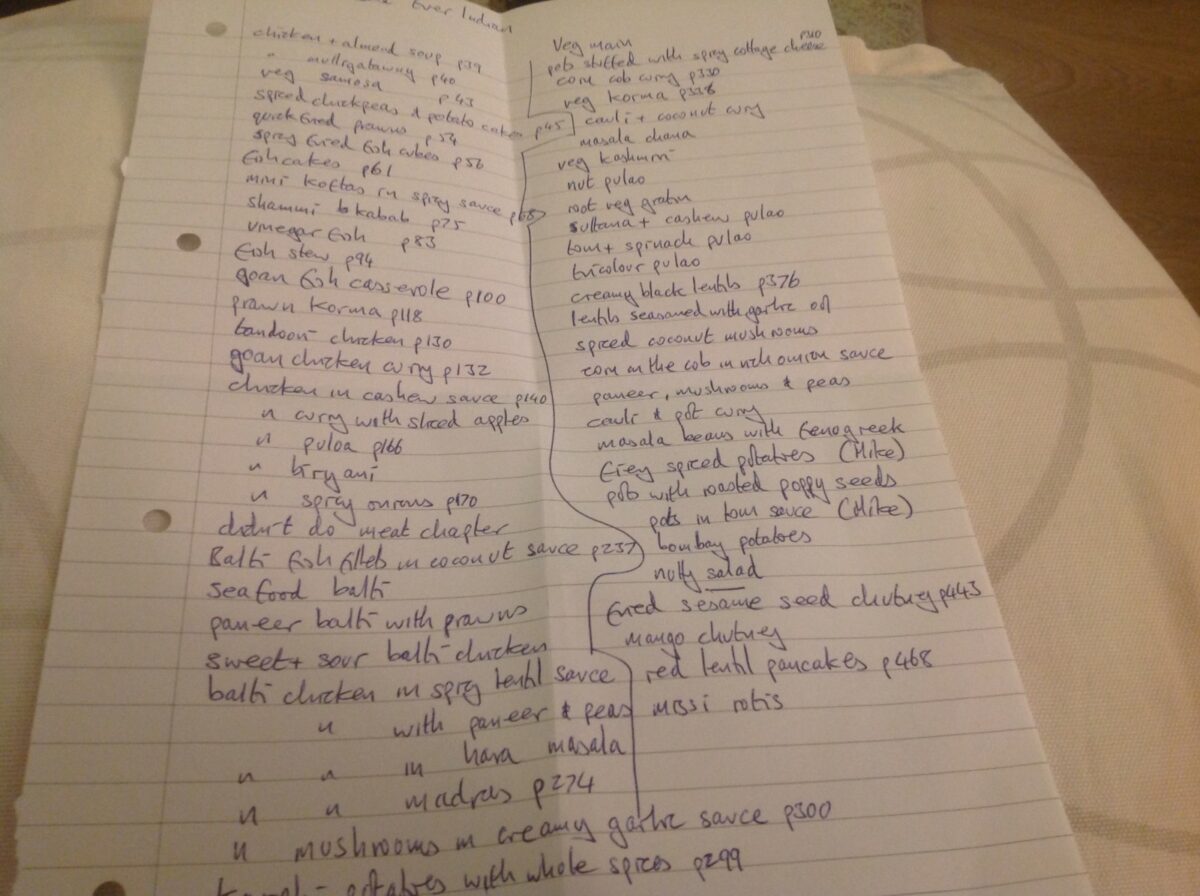 Ever Indian
chicken + almond soup p39
" mullrgatawny p40
veg samosa p43
spiced chickpeas & potato cakes p45
quick fried prawns p54
spicy fried fish cubes p56
fishcakes p61
mini koftas in spicy sauce p68
shammi kabab p75
vinegar fish p83
fish stew p94
goan fish casserole p100
prawn korma p118
tandoori chicken p130
goan chicken curry p132
chicken in cashew sauce p140
" curry with sliced apples
" puloa p166
" biryani
" spicy onions p170
didn't do meat chapter
Balti fish fillets in coconut sauce p237
seafood balti
paneer balti with prawns
sweet + sour balti chicken
balti chicken in spicy lentil sauce
" with paneer & peas
" " in hara masala
" " madras p274
" mushrooms in creamy garlic sauce p300
potatoes with whole spices p299
Veg main
pots stuffed with spicy cottage cheese p310
corn cob curry p330
veg korma p338
cauli + coconut curry
masala chana
veg kashmiri
nut pulao
root veg gratin
sultana + cashew pulao
tom + spinach pulao
tricolour pulao
creamy black lentils p376
lentils seasoned with garlic oil
spiced coconut mushrooms
corn on the cob in rich onion sauce
paneer, mushrooms & peas
cauli & pot curry
masala beans with fenogreek
firey spiced potatoes (Mike)
pots with roasted poppy seeds
pots in tom sauce (Mike)
bombay potatoes
nutty salad
fried sesame seed chutney p443
mango chutney
red lentil pancakes p468
missi rotis